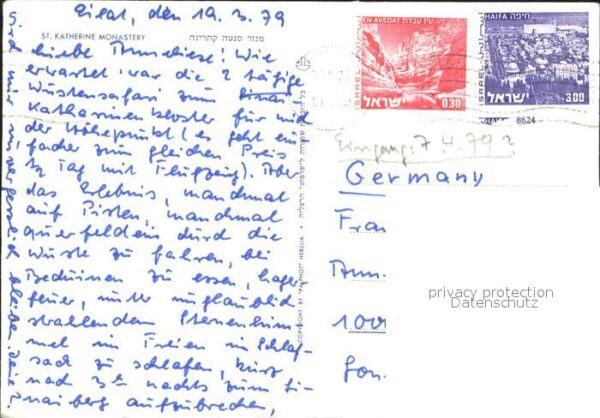 Eilat, den 19.3.79
ST. KATHERINE MONASTERY מנזר סנטה קתרינה
Liebe Anneliese! Wie
erwartet war die 2 tägige
Wüstensafari zum Sinai
Katharinenkloster für mich
der Höhepunkt (es geht ein-
facher zum gleichen Preis
½ Tag mit Flugzeug). Aber
das Erlebnis, manchmal
auf Pisten, manchmal
querfeldein durch die
Wüste zu fahren, bei
Beduinen zu essen, Lager-
feuer, unter unglaublich
strahlendem Sternenhim-
mel im Freien im Schlaf-
sack zu schlafen, kurz
nach 3h nachts zum Si-
naiberg aufzubrechen,
wird
mir
unvergesslich
bleiben.
COPYRIGHT BY "PALPHOT" HERZLIA •
EN AVEDAT עין עבדת
ISRAEL
ישראל
0.30
HAIFA חיפה
ISRAEL
ישראל
3.00
8624
Eingang: 7.4.79 ?
Germany
Frau
Ann
100
privacy protection
Datenschutz